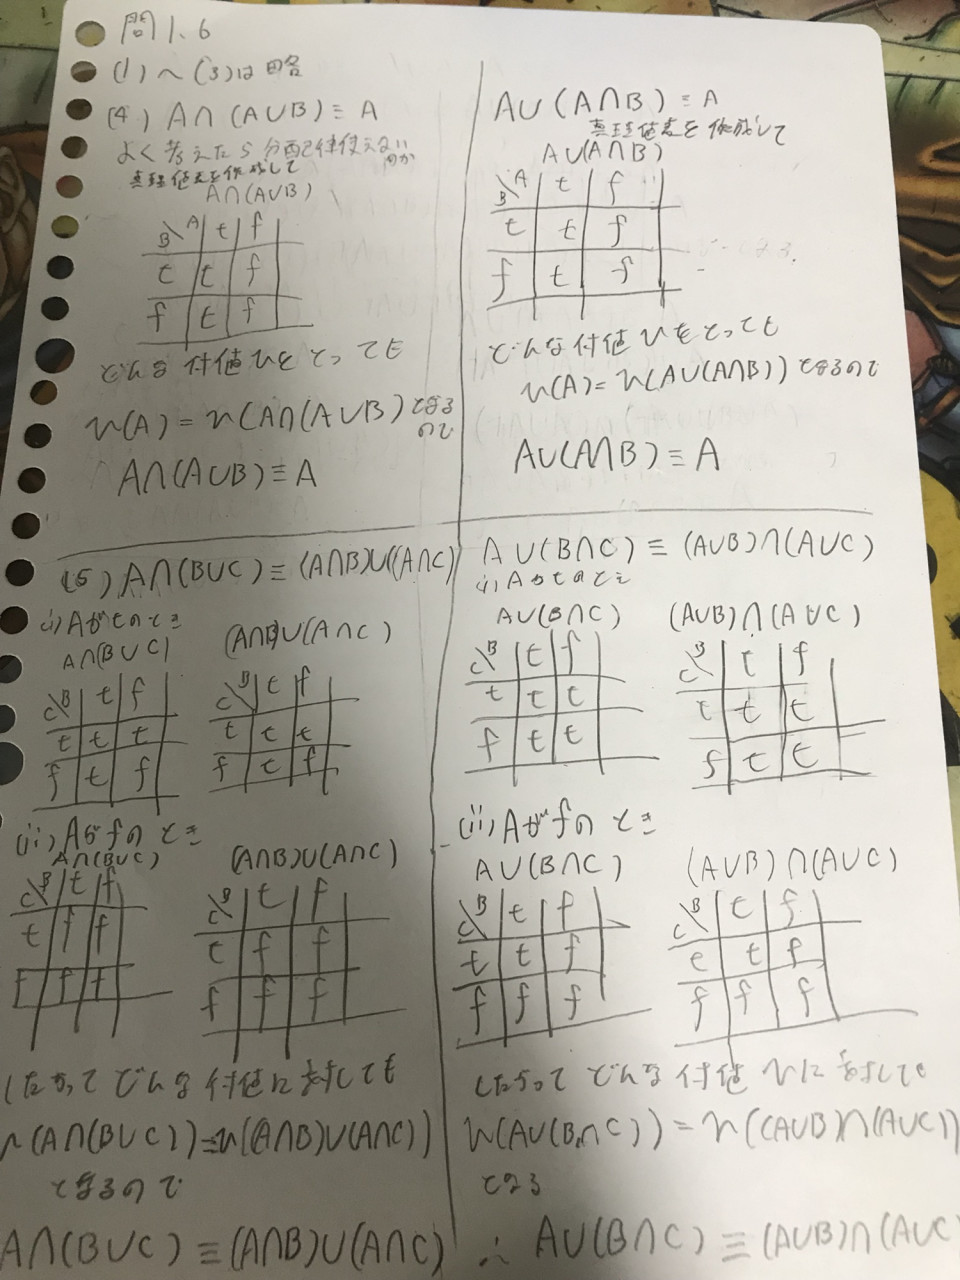 問1.6
(1)~(3)は略
(4) A∩(A∪B)≡A
よく考えたら分配律使えない
真理値表を作成して
A∩(A∪B)
B\A t f
t t f
f t f
どんな付値vをとっても
v(A)=v(A∩(A∪B)となる
ので
A∩(A∪B)≡A
A∪(A∩B)≡A
真理値表を作成して
A∪(A∩B)
B\A t f
t t f
f t f
どんな付値vをとっても
v(A)=v(A∪(A∩B))となるので
A∪(A∩B)≡A
(5) A∩(B∪C)≡(A∩B)∪(A∩C)
(i)Aがtのとき
A∩(B∪C) (A∩B)∪(A∩C)
C\B t f C\B t f
t t t t t t
f t f f t f
(ii)Aがfのとき
A∩(B∪C) (A∩B)∪(A∩C)
C\B t f C\B t f
t f f t f f
f f f f f f
したがってどんな付値に対しても
v(A∩(B∪C))=v((A∩B)∪(A∩C))
となるので
A∩(B∪C)≡(A∩B)∪(A∩C)
A∪(B∩C)≡(A∪B)∩(A∪C)
(i)Aがtのとき
A∪(B∩C) (A∪B)∩(A∪C)
C\B t f C\B t f
t t t t t t
f t t f t t
(ii)Aがfのとき
A∪(B∩C) (A∪B)∩(A∪C)
C\B t f C\B t f
t t f t t f
f f f f f f
したがってどんな付値vに対しても
v(A∪(B∩C))=v((A∪B)∩(A∪C))
となる
∴ A∪(B∩C)≡(A∪B)∩(A∪C